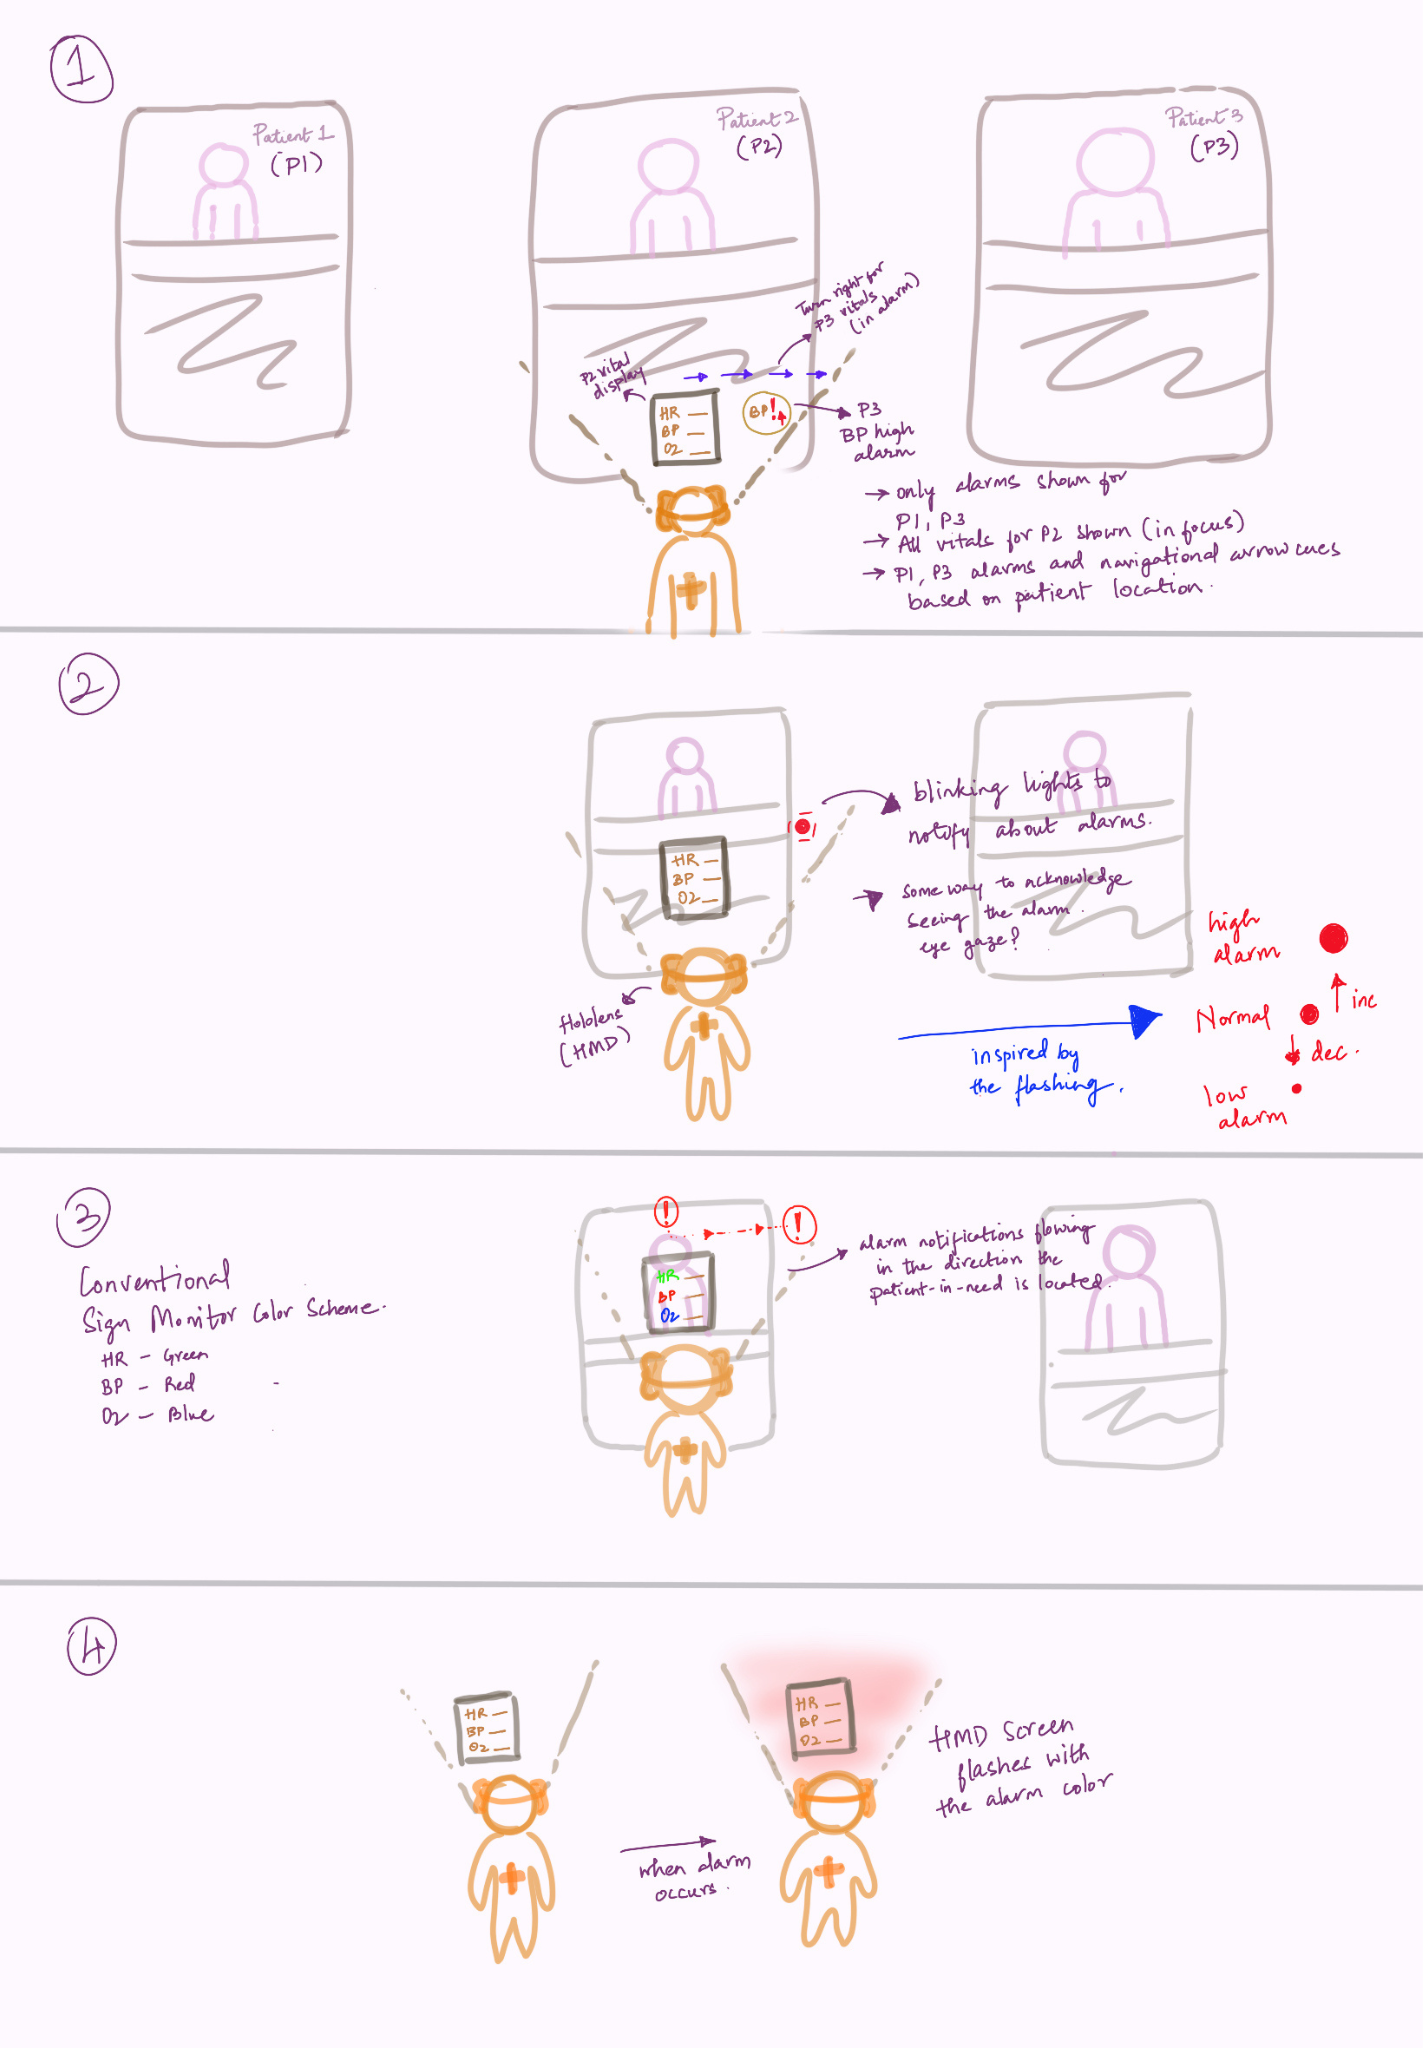 1
Patient 1
(P1)
Patient 2
(P2)
Patient 3
(P3)
Turn right for
P3 vitals
(in alarm)
P2 vital
display
HR
BP
O2
BP!
P3
BP high
alarm
→ only alarms shown for
P1, P3
→ All vitals for P2 shown (in focus)
→ P1, P3 alarms and navigational arrow cues
based on patient location.
2
blinking lights to
notify about alarms.
HR
BP
O2
some way to acknowledge
seeing the alarm.
eye gaze?
Hololens
(HMD)
inspired by
the flashing.
high
alarm
inc
Normal
dec.
low
alarm
3
Conventional
Sign Monitor Color Scheme.
HR - Green
BP - Red
O2 - Blue
!
!
HR
BP
O2
alarm notifications flowing
in the direction the
patient-in-need is located.
4
HR
BP
O2
when alarm
occurs.
HR
BP
O2
HMD Screen
flashes with
the alarm color